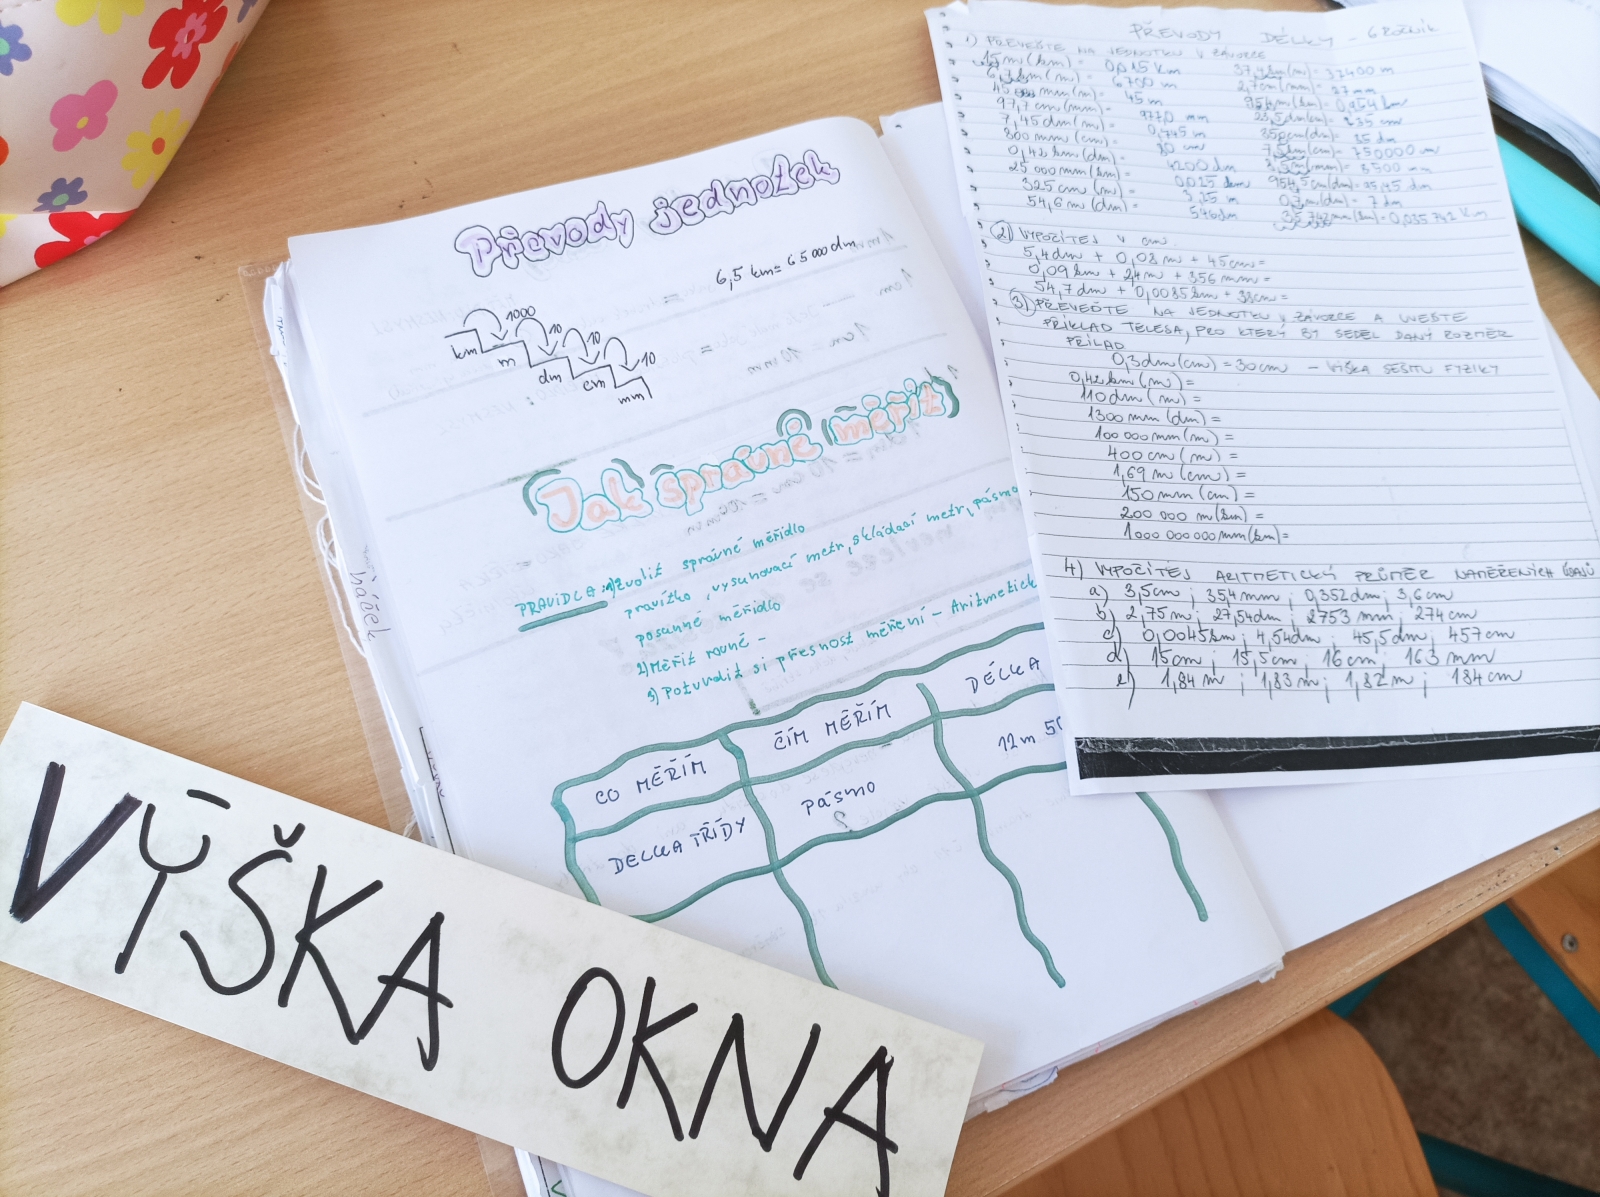 Převody jednotek
6,5 km = 65 000 dm
km
1000
m
10
dm
10
cm
10
mm
Jak správně měřit
PRAVIDLA: 1) Zvolit správné měřidlo
pravítko, vysunovací metr, skládací metr, pásmo
posuvné měřidlo
2) Měřit rovně -
3) Potvrdit si přesnost měření - Aritmetick
CO MĚŘÍM
ČÍM MĚŘÍM
DÉLKA
DELKA TŘÍDY
PÁSMO
?
12 m 50
háček
VÝŠKA OKNA
PŘEVODY DÉLKY - 6 ROČNÍK
1) PŘEVEĎTE NA JEDNOTKU V ZÁVORCE
15 m (km) = 0,015 km
6,7 km (m) = 6700 m
45 000 mm (m) = 45 m
97,7 cm (mm) = 977,0 mm
7,45 dm (m) = 0,745 m
300 mm (cm) = 30 cm
0,42 km (dm) = 4200 dm
25 000 mm (km) = 0,025 km
325 cm (m) = 3,25 m
54,6 m (dm) = 546 dm
37,4 km (m) = 37400 m
2,7 cm (mm) = 27 mm
350 cm (dm) = 35 dm
954,5 cm (dm) = 95,45 dm
0,7 m (dm) = 7 dm
35 742 mm (km) = 0,035 742 km
2) VYPOČÍTEJ V cm
5,4 dm + 0,08 m + 45 cm =
0,09 km + 24 m + 356 mm =
54,7 dm + 0,0085 km + 38 cm =
3) PŘEVEĎTE NA JEDNOTKU V ZÁVORCE A UVEĎTE
PŘÍKLAD TĚLESA, PRO KTERÝ BY SEDĚL DANÝ ROZMĚR
PŘÍLAD
0,3 dm (cm) = 30 cm - VÝŠKA SEŠITU FYZIKY
0,42 km (m) =
110 dm (m) =
1300 mm (dm) =
100 000 mm (m) =
400 cm (m) =
1,69 m (cm) =
150 mm (cm) =
200 000 m (km) =
1 000 000 000 mm (km) =
4) VYPOČÍTEJ ARITMETICKÝ PRŮMĚR NAMĚŘENÝCH ÚDAJŮ
a) 3,5 cm ; 35,4 mm ; 0,352 dm ; 3,6 cm
b) 2,75 m ; 27,54 dm ; 2753 mm ; 274 cm
c) 0,0045 km ; 4,54 dm ; 45,5 dm ; 457 cm
d) 15 cm ; 15,5 cm ; 16 cm ; 163 mm
e) 1,84 m ; 1,83 m ; 1,82 m ; 184 cm